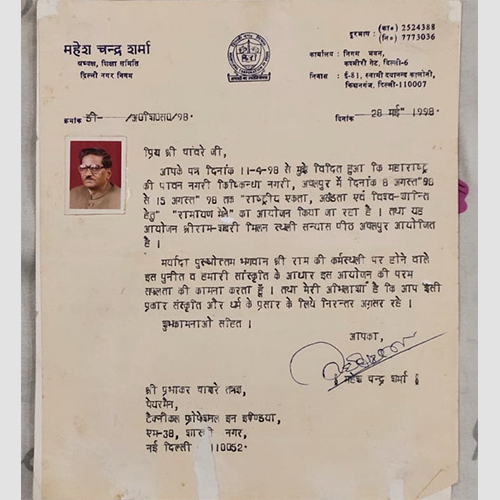 महेश चन्द्र शर्मा
अध्यक्ष, शिक्षा समिति
दिल्ली नगर निगम
दूरभाष : (का०) 2524388
(नि०) 7773036
कार्यालय : निगम भवन,
कश्मीरी गेट, दिल्ली-6
निवास : ई-81, स्वामी दयानन्द कालोनी,
किशनगंज, दिल्ली-110007
क्रमांक डी- /अ०शि०स०/98.
दिनांक 28 मई" 1998.
प्रिय श्री यांवरे जी,
आपके पत्र दिनांक 11-4-98 से मुझे विदित हुआ कि महाराष्ट्र
की पावन नगरी किष्किन्धा नगरी, अचलपुर में दिनांक 8 अगस्त'98
से 15 अगस्त' 98 तक "राष्ट्रीय एकता, अखंडता एवं विश्व-शान्ति
हेतु" "रामायण मेले" का आयोजन किया जा रहा है । तथा यह
आयोजन श्रीराम-शबरी मिलन स्थली सन्यास पीठ अचलपुर आयोजित
है ।
मर्यादा पुरुषोत्तम भगवान श्री राम की कर्मस्थली पर होने वाले
इस पुनीत व हमारी सांस्कृति के आधार इस आयोजन की परम
सफलता की कामना करता हूँ । तथा मेरी अभिलाषा है कि आप इसी
प्रकार संस्कृति और धर्म के प्रसार के लिये निरन्तर अग्रसर रहे ।
शुभकामनाओं सहित ।
आपका,
महेश चन्द्र शर्मा
श्री प्रभाकर यांवरे
चेयरमैन,
टैक्नीकल प्रोफेशनल इन इण्डिया,
एम-38, शास्त्री नगर,
नई दिल्ली 110052.